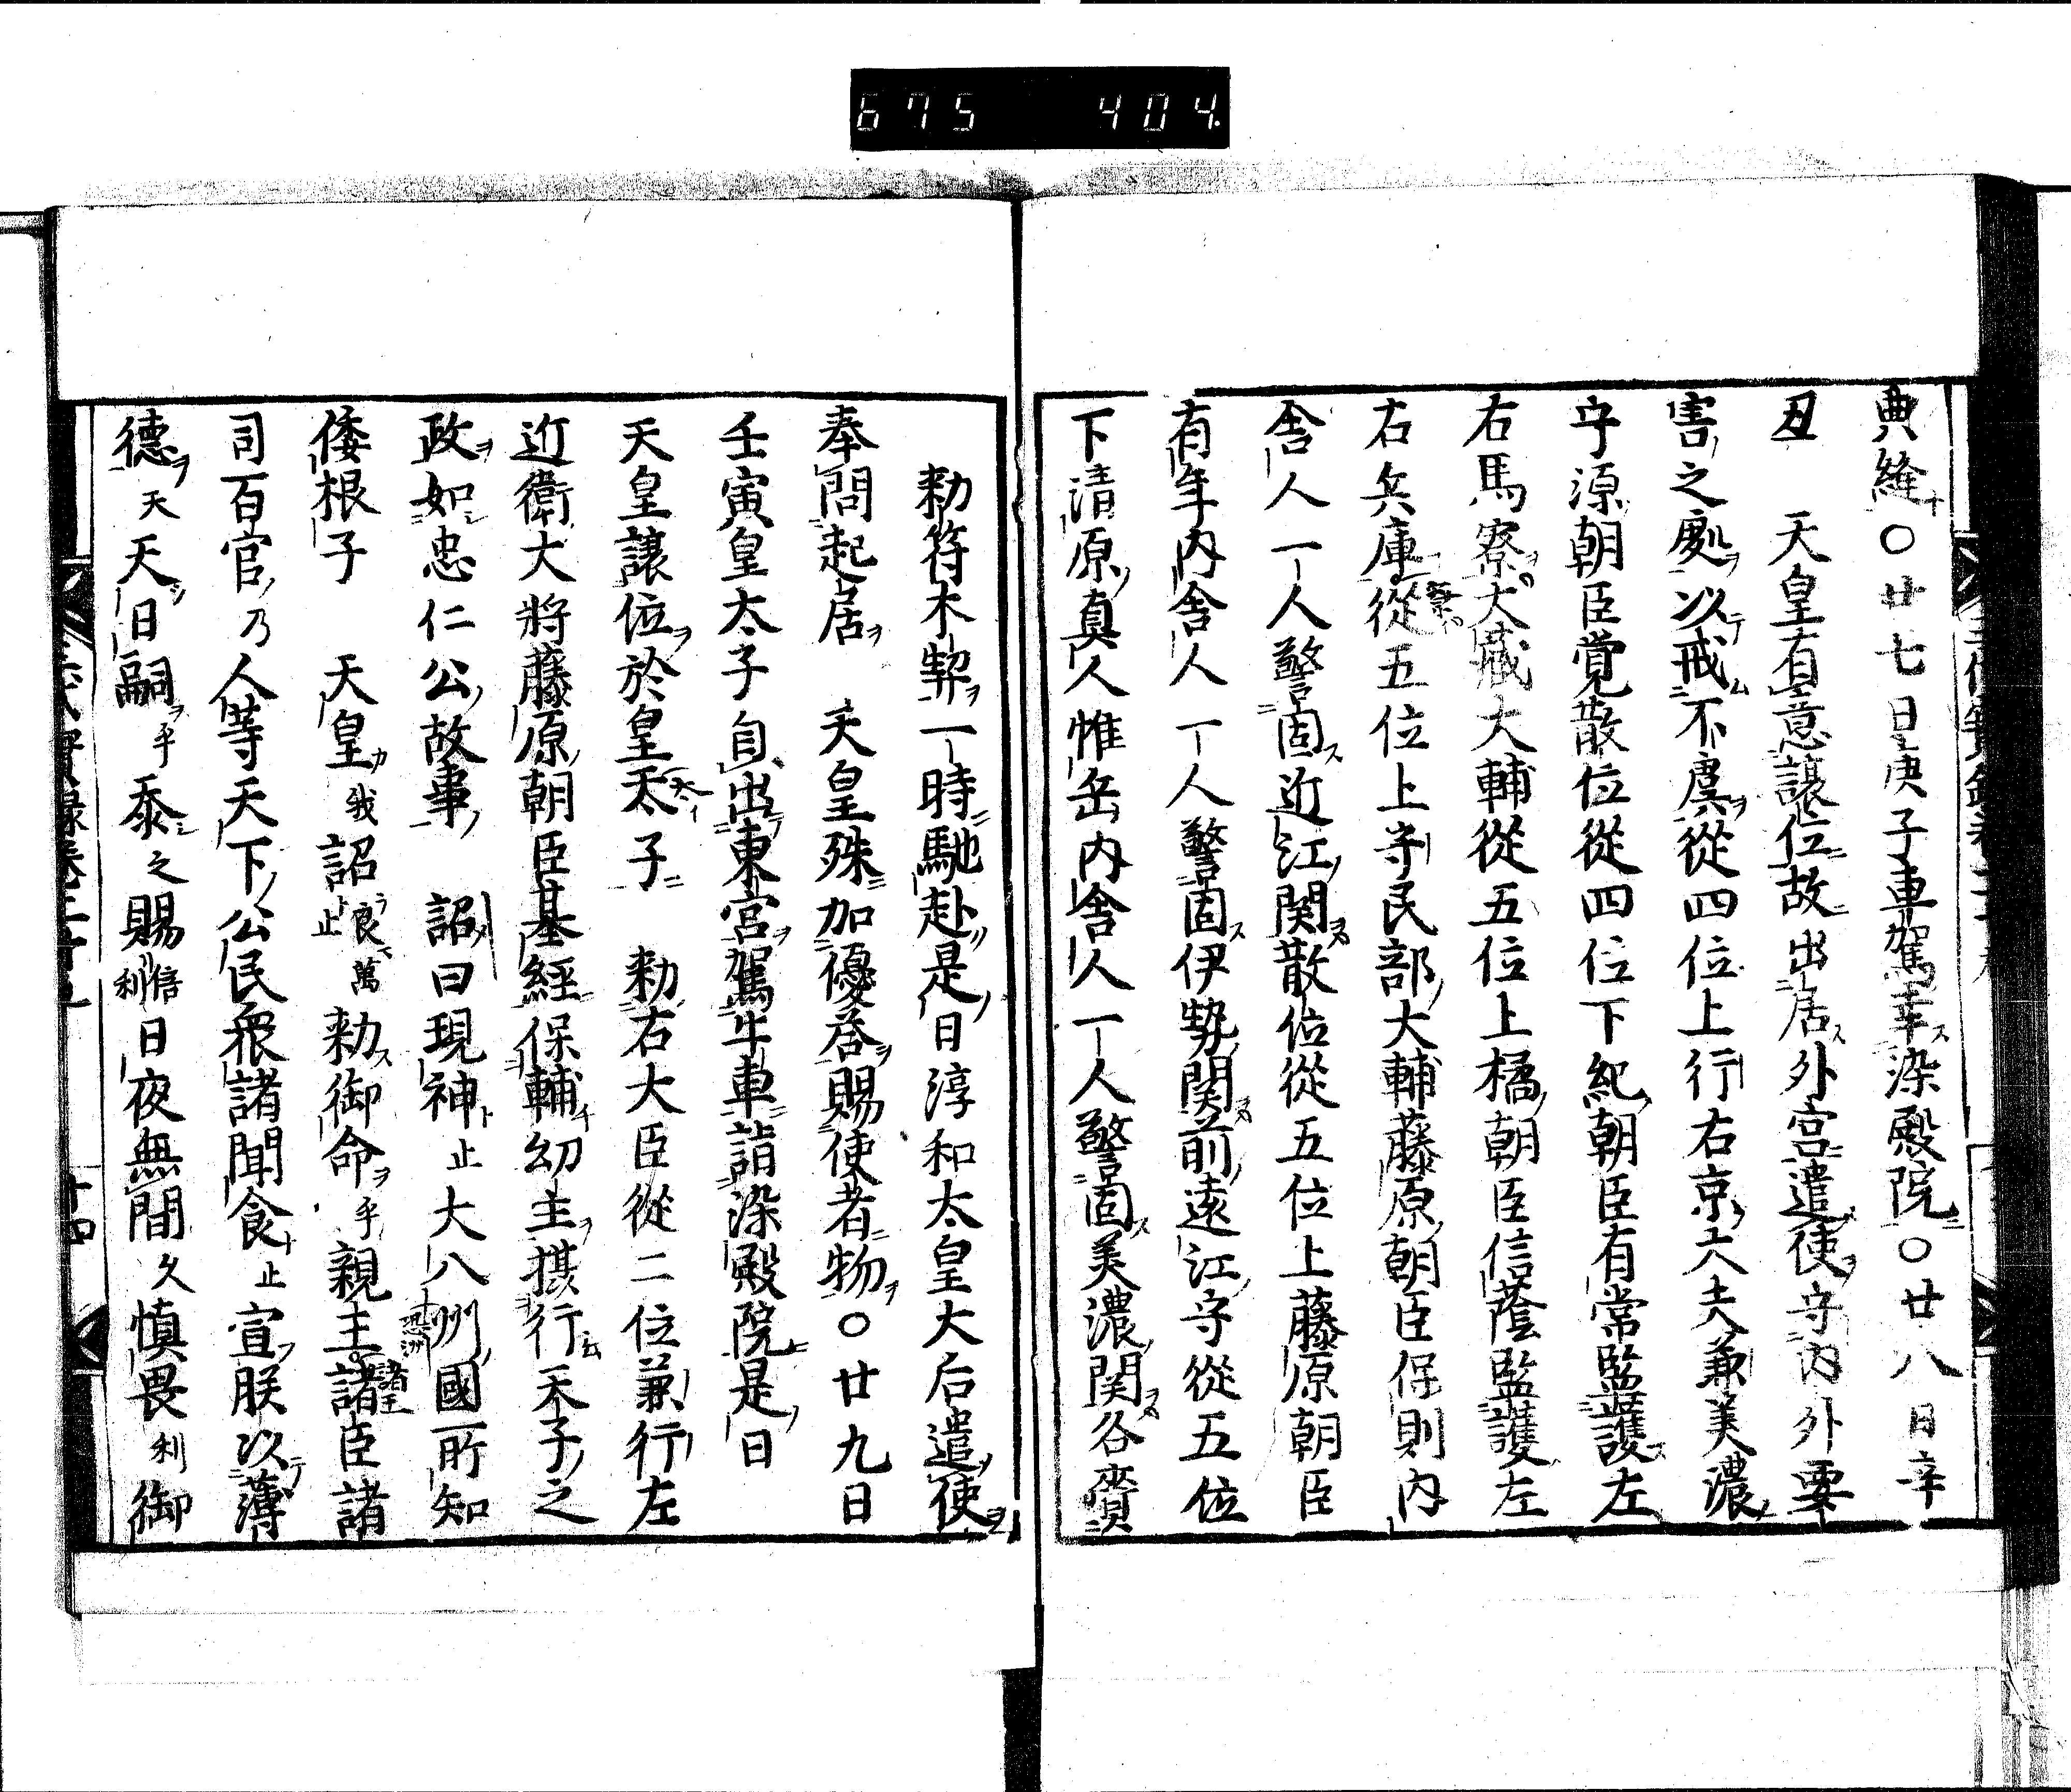 675 404.
典縫〇廿七日庚子車駕幸染殿院〇廿八日辛
丑 天皇有意譲位故出居外宮遣使守内外要
害之處以戒不虞從四位上行右京大夫兼美濃
守源朝臣覺散位從四位下紀朝臣有常監護左
右馬寮大藏大輔從五位上橘朝臣信蔭監護左
右兵庫從五位上守民部大輔藤原朝臣保則内
舎人一人警固近江関散位從五位上藤原朝臣
有年内舎人一人警固伊勢関前遠江守從五位
下清原真人惟岳内舎人一人警固美濃関各齎
勅符木契一時馳赴是日淳和太皇大后遣使
奉問起居 天皇殊加優答賜使者物〇廿九日
壬寅皇太子自出東宮駕牛車詣染殿院是日
天皇譲位於皇太子 勅右大臣從二位兼行左
近衛大將藤原朝臣基經保輔幼主摂行天子之
政如忠仁公故事 詔曰現神止大八州國所知
倭根子 天皇我詔良萬止勅御命乎親王諸臣諸
司百官乃人等天下公民衆諸聞食止宣朕以薄
德天天日嗣乎忝之賜倍利日夜無間久慎畏利御
三代實録卷二十九
十四